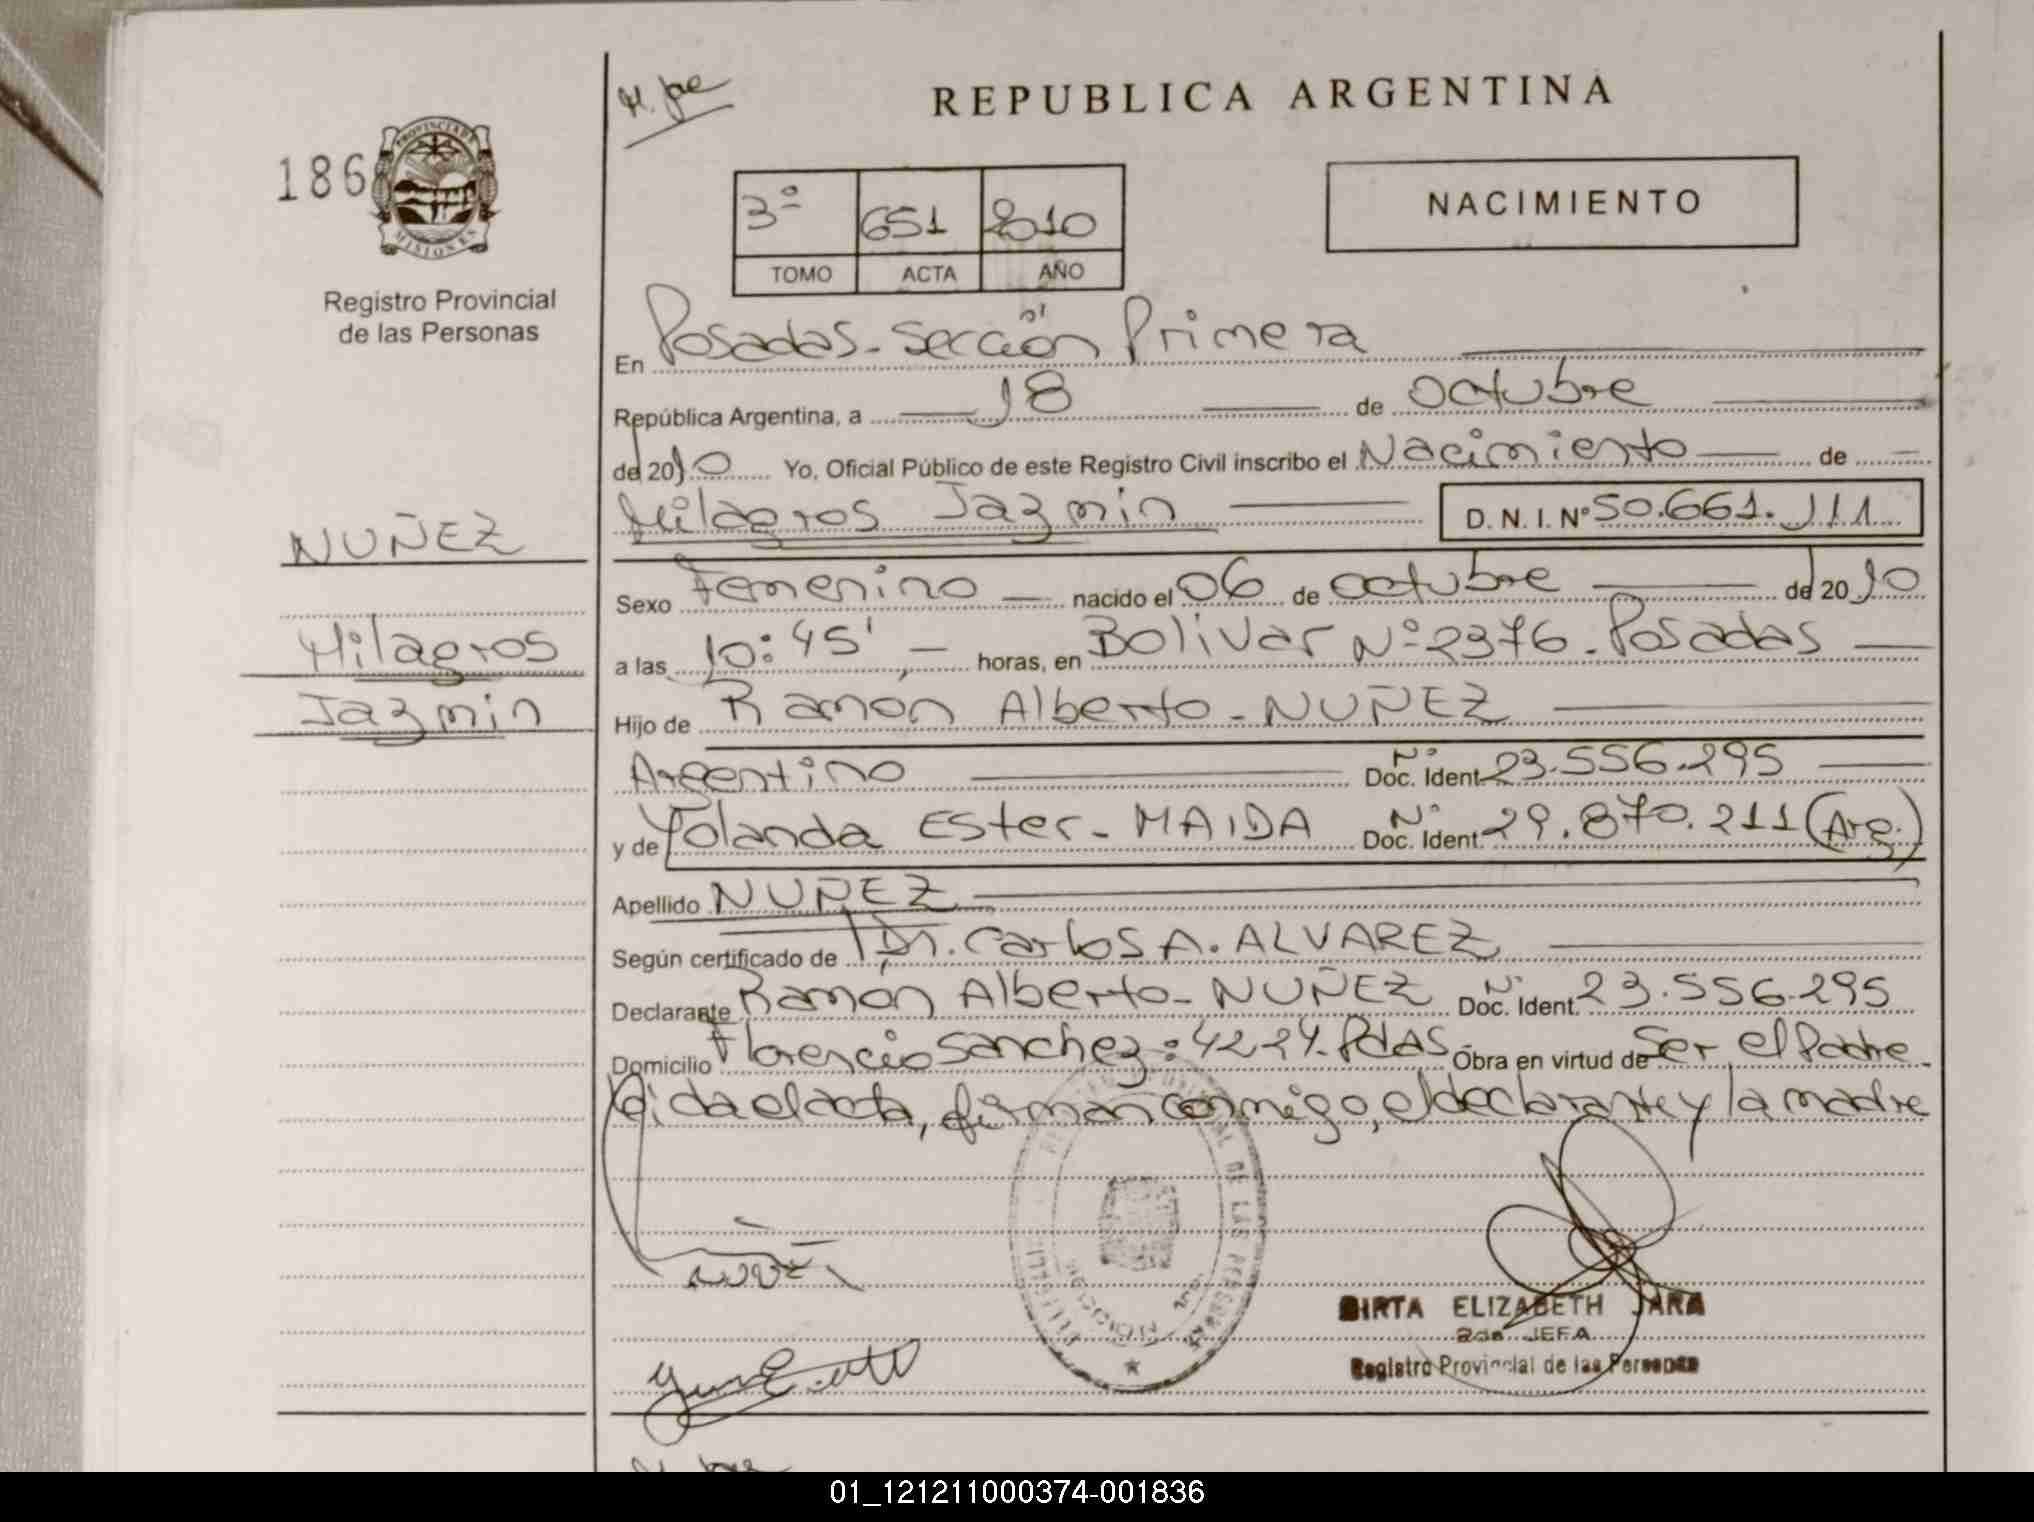 M. Jae
REPUBLICA ARGENTINA
186
PROVINCIA DE
MISIONES
Registro Provincial
de las Personas
3º 651 2010
TOMO ACTA AÑO
NACIMIENTO
En Posadas - Sección Primera
República Argentina, a 18 de octubre
del 2010 Yo, Oficial Público de este Registro Civil inscribo el Nacimiento de
Milagros Jazmin D. N. I. Nº 50.661.111
NUÑEZ
Milagros
Jazmin
Sexo Femenino nacido el 06 de octubre del 2010
a las 10:45', horas, en Bolivar Nº 2376 - Posadas
Hijo de Ramon Alberto - NUÑEZ
Argentino Doc. Ident. Nº 23.556.295
y de Yolanda Ester - MAIDA Doc. Ident. Nº 29.870.211 (Arg.)
Apellido NUÑEZ
Según certificado de Dr. Carlos A. ALVAREZ
Declarante Ramon Alberto - NUÑEZ Doc. Ident. Nº 23.556.295
Domicilio Florencio Sanchez: 4224. Pdas Obra en virtud de ser el Padre
Leida el acta, firman conmigo, el declarante y la madre
DE LAS PERSONAS
MIRTA ELIZABETH JARA
2da. JEFA
Registro Provincial de las Personas
01_121211000374-001836